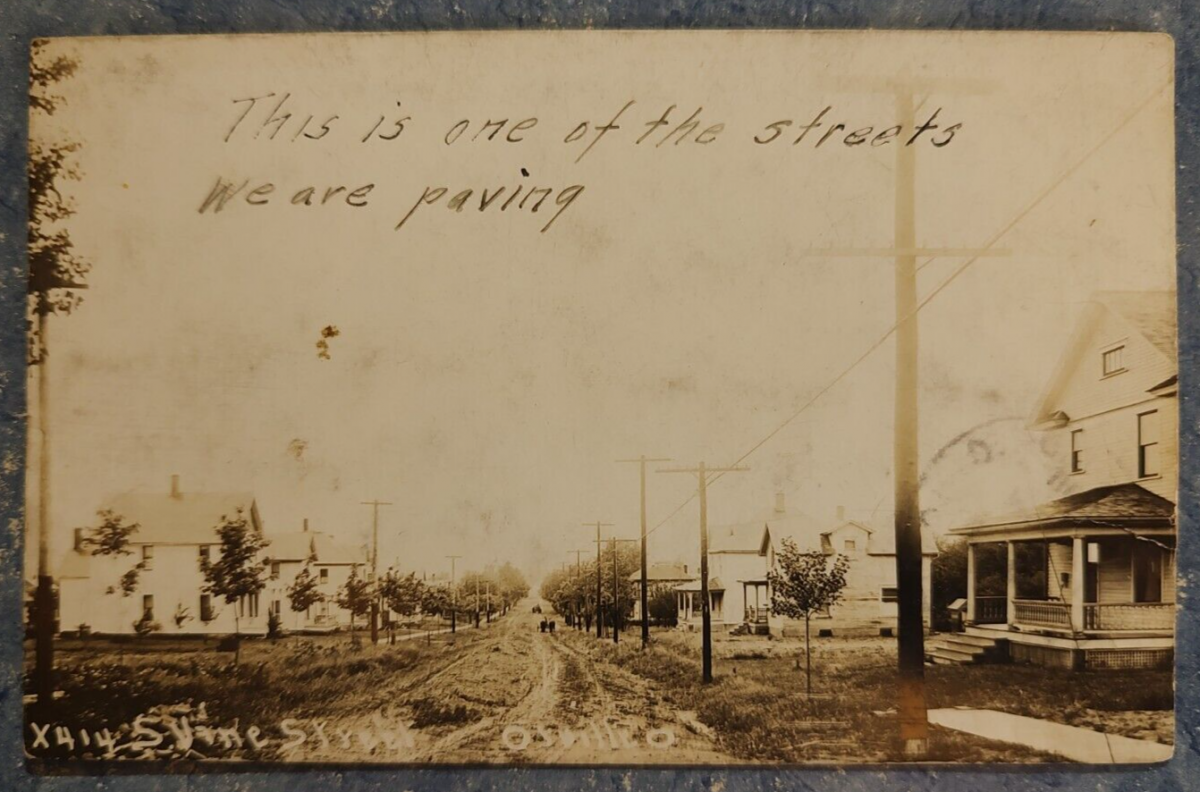 This is one of the streets
We are paving
X414 S Vine Street Orrville O